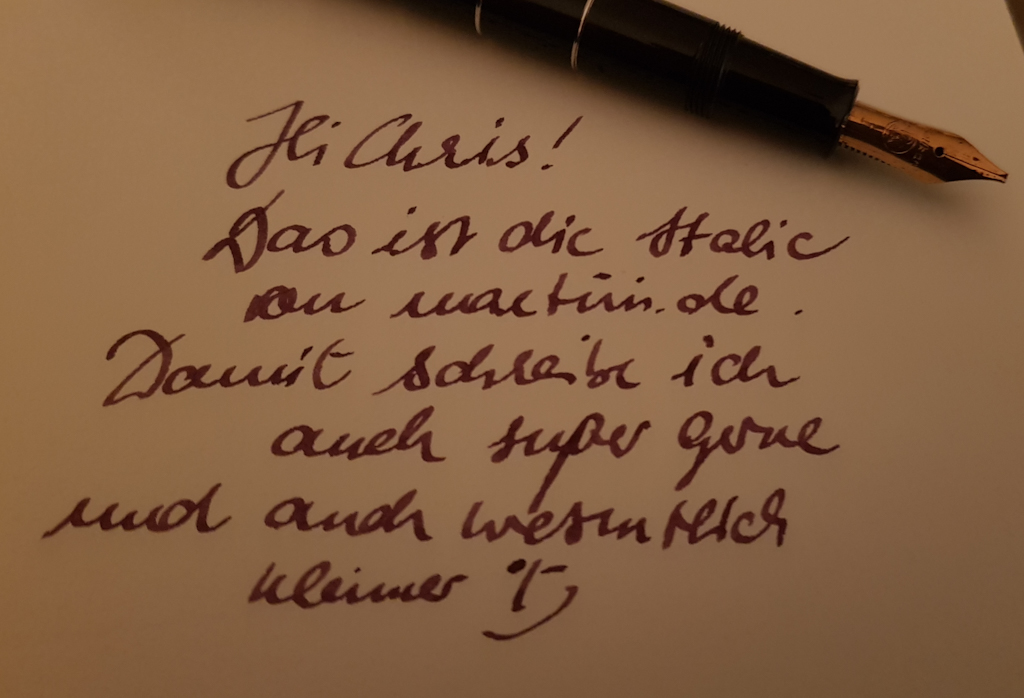 Hi Chris!
Das ist die Italic
von martini.de.
Damit schreibe ich
auch super gerne
und auch wesentlich
kleiner